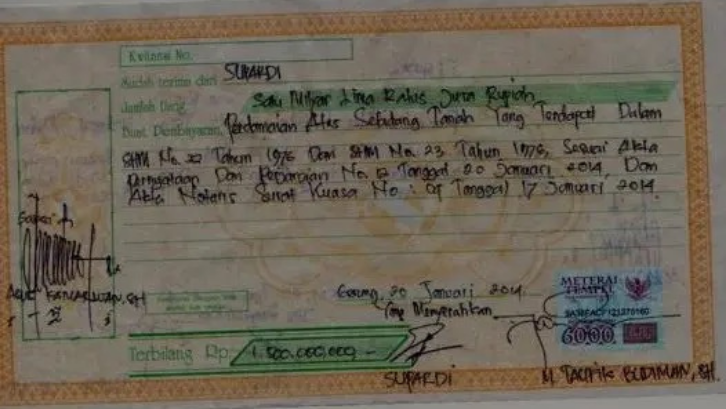 Kwitansi No.
Sudah terima dari SUPARDI
Jumlah Uang Satu Milyar Lima Ratus Juta Rupiah
Buat Pembayaran Perdamaian Atas Sebidang Tanah Yang Terdapat Dalam
SHM No. 22 Tahun 1976 Dan SHM No. 23 Tahun 1976, Sesuai Akta
Pernyataan Dan No. 12 Tanggal 20 Januari 2014, Dan
Akta Notaris Surat Kuasa No : 09 Tanggal 17 Januari 2014
Saksi
SH
20 Januari 2014
Yang Menyerahkan
METERAI
TEMPEL
6000
Terbilang Rp. 1.500.000.000,-
SUPARDI
M. TAUPIK BUDIMAN, SH.